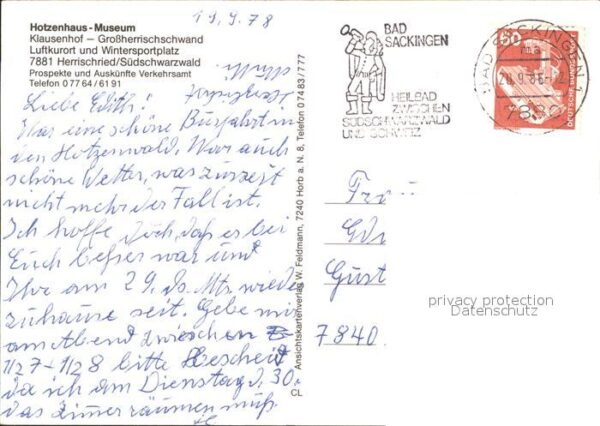 19.9.78
Hotzenhaus-Museum
Klausenhof – Großherrischschwand
Luftkurort und Wintersportplatz
7881 Herrischried/Südschwarzwald
Prospekte und Auskünfte Verkehrsamt
Telefon 0 77 64 / 61 91
Liebe Edith!
War eine schöne Busfahrt in
den Hotzenwald. War auch
schöne Wetter, was zurzeit
nicht mehr der Fall ist.
Ich hoffe doch daß es bei
Euch besser war und
Ihr am 29. ds. Mts. wieder
zuhause seit. Gebe mir
am Abend zwischen
1/2 7 - 1/2 8 bitte Bescheid
da ich am Dienstag d. 30.
das Zimer räumen muß.
Ansichtskartenverlag W. Feldmann, 7240 Horb a. N. 8, Telefon 0 74 83 / 777
CL
BAD
SÄCKINGEN
HEILBAD
ZWISCHEN
SÜDSCHWARZWALD
UND SCHWEIZ
BAD SÄCKINGEN 1
7880
50
DEUTSCHE BUNDESPOST
Gust
7840
privacy protection
Datenschutz